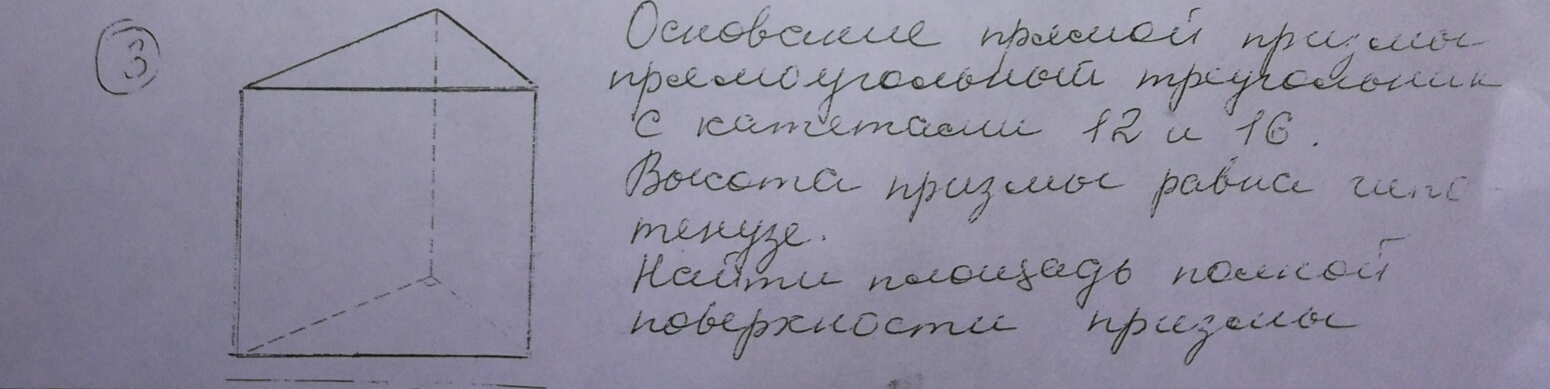 3
Основание прямой призмы
прямоугольный треугольник
с катетами 12 и 16.
Высота призмы равна гипо
тенузе.
Найти площадь полной
поверхности призмы